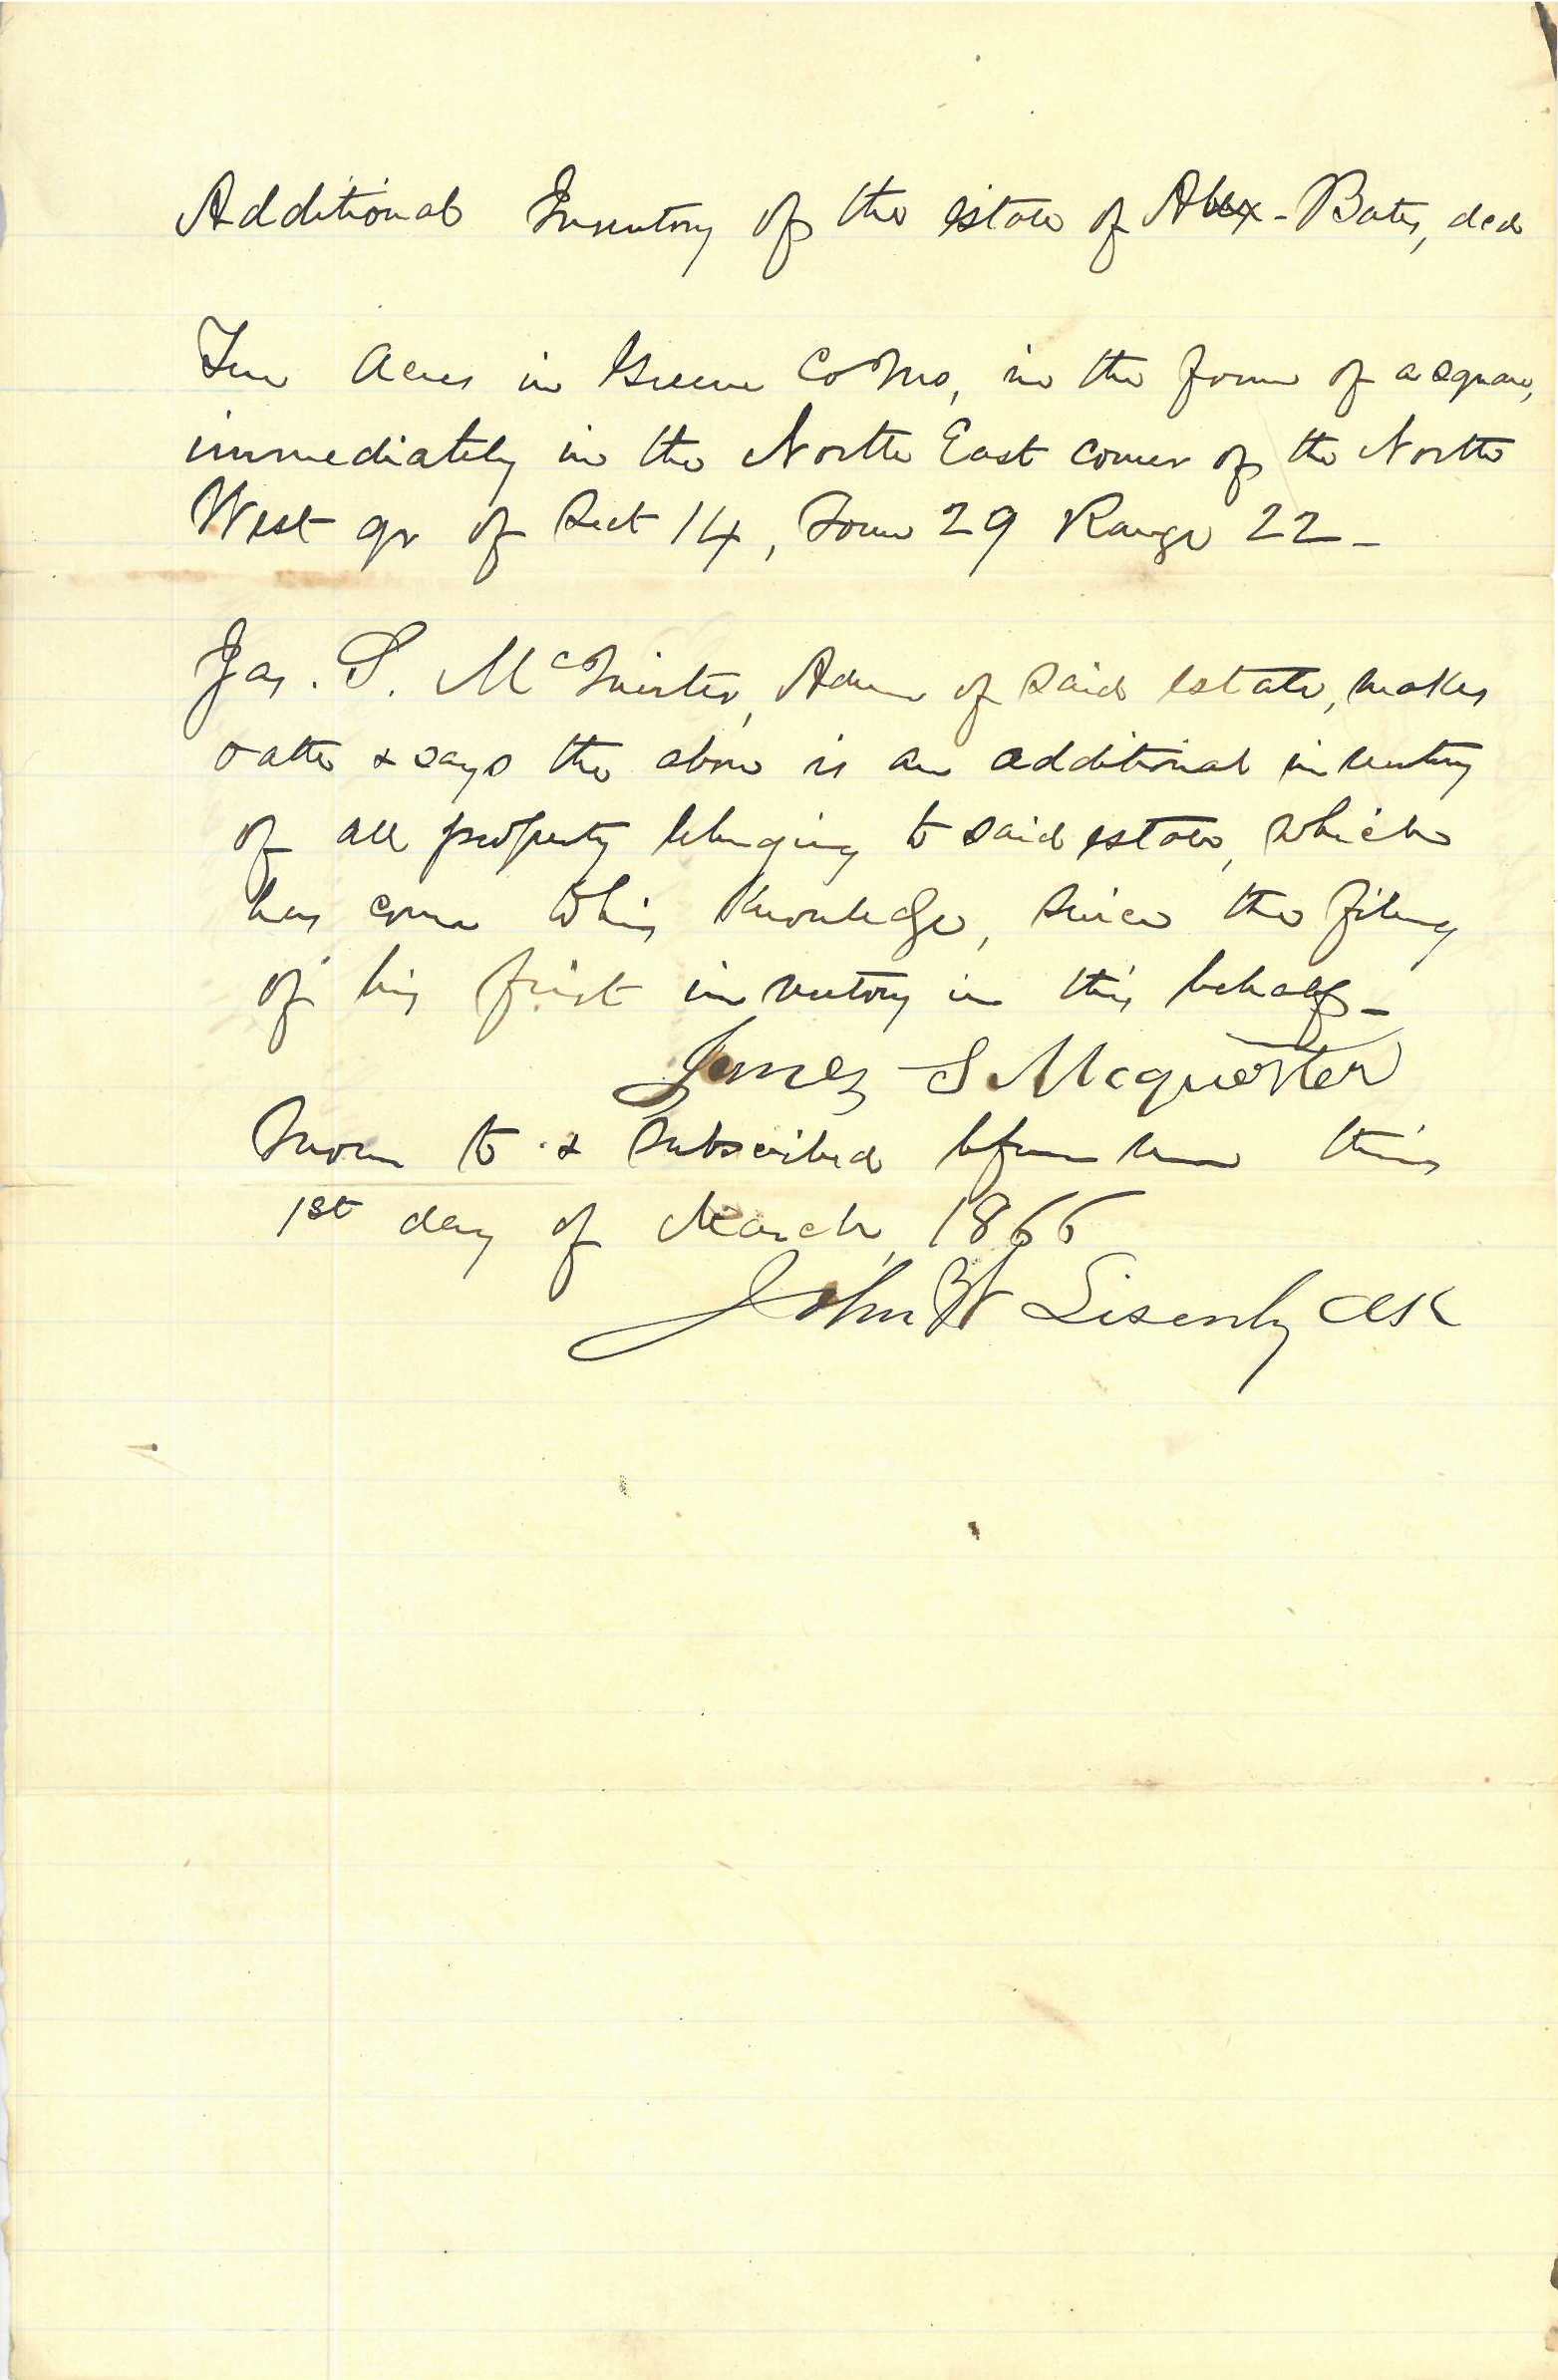 Additional Inventory of the estate of Alex - Bates, decd
Ten Acres in Greene Co Mo, in the form of a square,
immediately in the North East corner of the North
West qr of Sect 14, Town 29 Range 22 -
Jas. S. McQuirter, Adm of said estate, makes
oath & says the above is an additional inventory
of all property belonging to said estate, which
has come to his knowledge, since the filing
of his first inventory in this behalf -
James S Mcquerter
Sworn to & subscribed before me this
1st day of March, 1866
John W Lisenby Clk